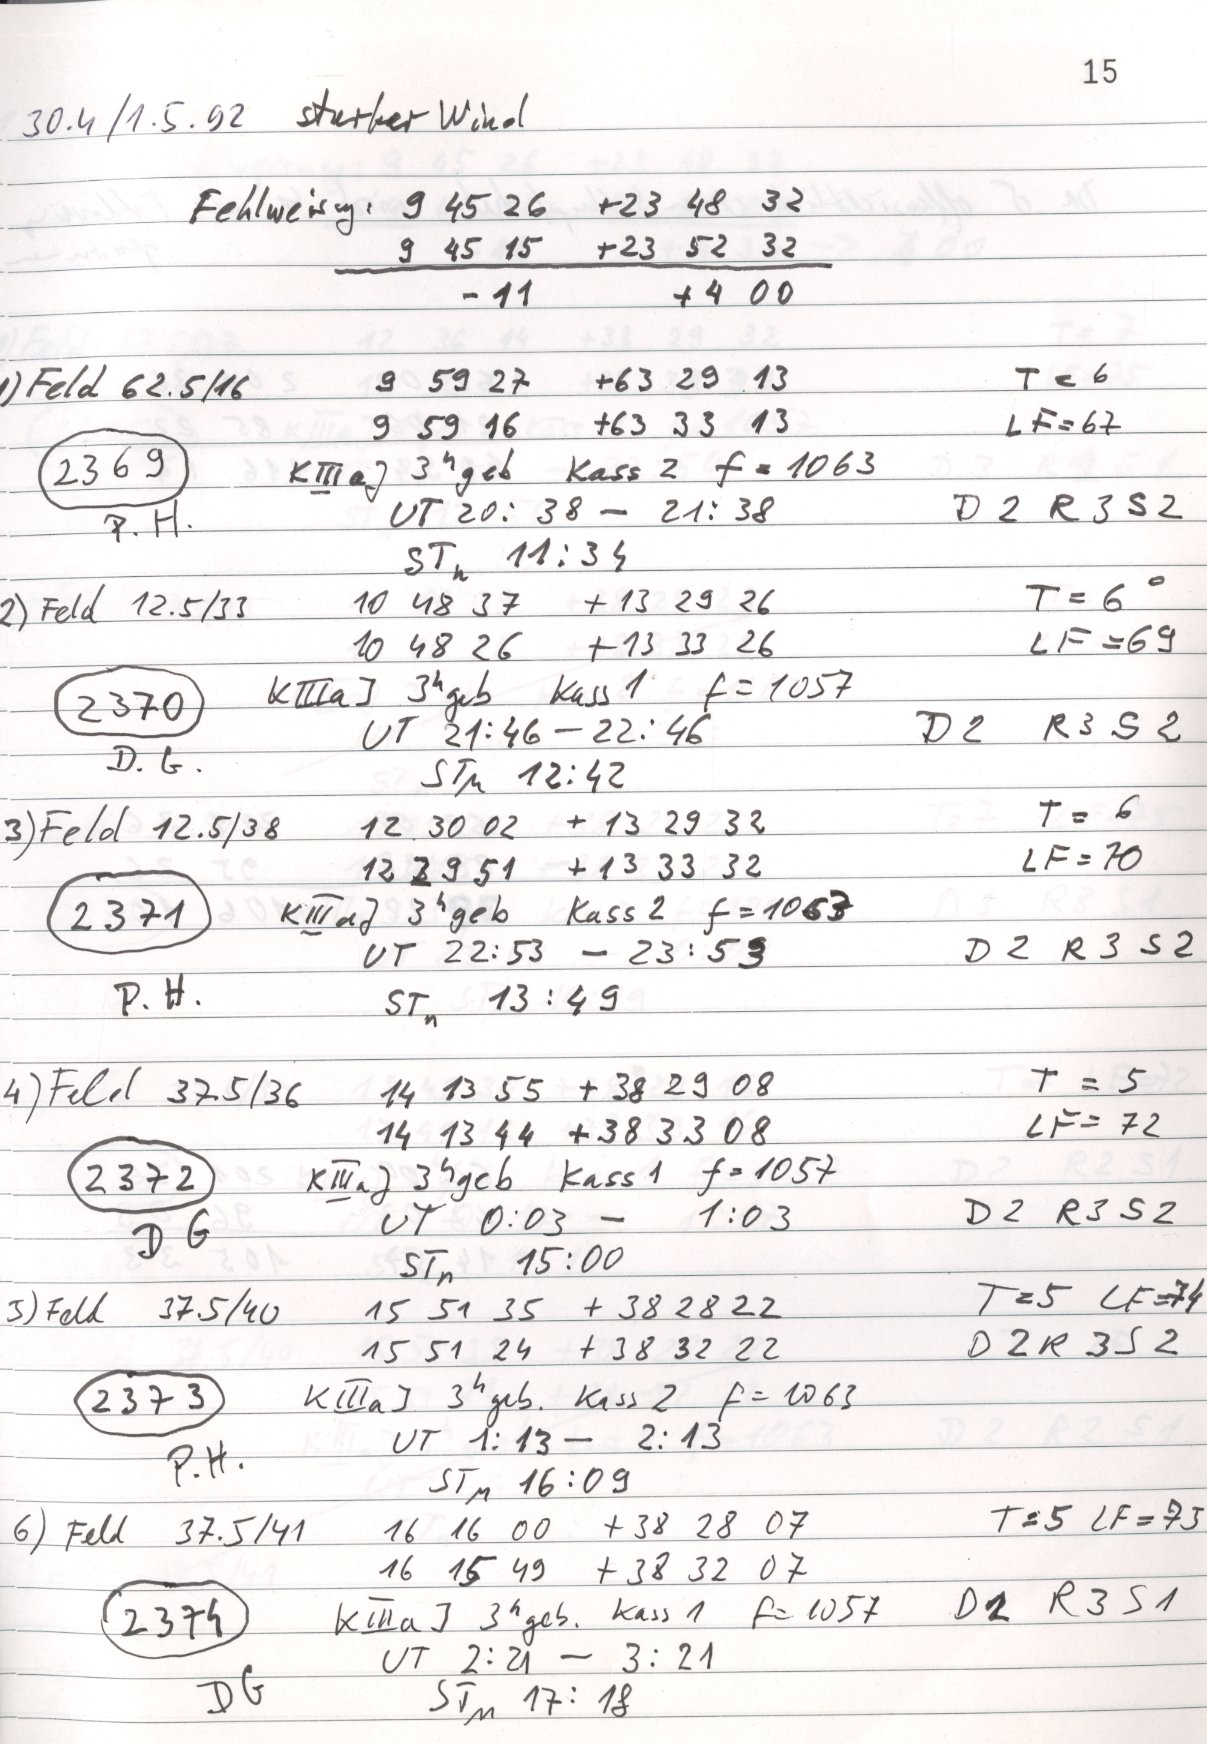 15
30.4/1.5.92 starker Wind
Fehlweisung: 9 45 26 +23 48 32
9 45 15 +23 52 32
-11 +4 00
1) Feld 62.5/16 9 59 27 +63 29 13 T = 6
9 59 16 +63 33 13 LF=67
2369 KIIIaJ 3h geb Kass 2 f = 1063
P.H. UT 20:38 – 21:38 D2 R3 S2
STn 11:34
2) Feld 12.5/33 10 48 37 +13 29 26 T = 6°
10 48 26 +13 33 26 LF=69
2370 KIIIaJ 3h geb Kass 1 f=1057
D.G. UT 21:46 – 22:46 D2 R3 S2
STn 12:42
3) Feld 12.5/38 12 30 02 +13 29 32 T = 6
12 29 51 +13 33 32 LF=70
2371 KIIIaJ 3h geb Kass 2 f=1063
UT 22:53 – 23:53 D2 R3 S2
P.H. STn 13:49
4) Feld 37.5/36 14 13 55 +38 29 08 T = 5
14 13 44 +38 33 08 LF= 72
2372 KIIIaJ 3h geb Kass 1 f=1057
DG UT 0:03 – 1:03 D2 R3 S2
STn 15:00
5) Feld 37.5/40 15 51 35 +38 28 22 T=5 LF=74
15 51 24 +38 32 22 D2 R3 S2
2373 KIIIaJ 3h geb. Kass 2 f=1063
P.H. UT 1:13 – 2:13
STn 16:09
6) Feld 37.5/41 16 16 00 +38 28 07 T=5 LF=73
16 15 49 +38 32 07
2374 KIIIaJ 3h geb. Kass 1 f=1057 D2 R3 S1
UT 2:21 – 3:21
DG STn 17:18